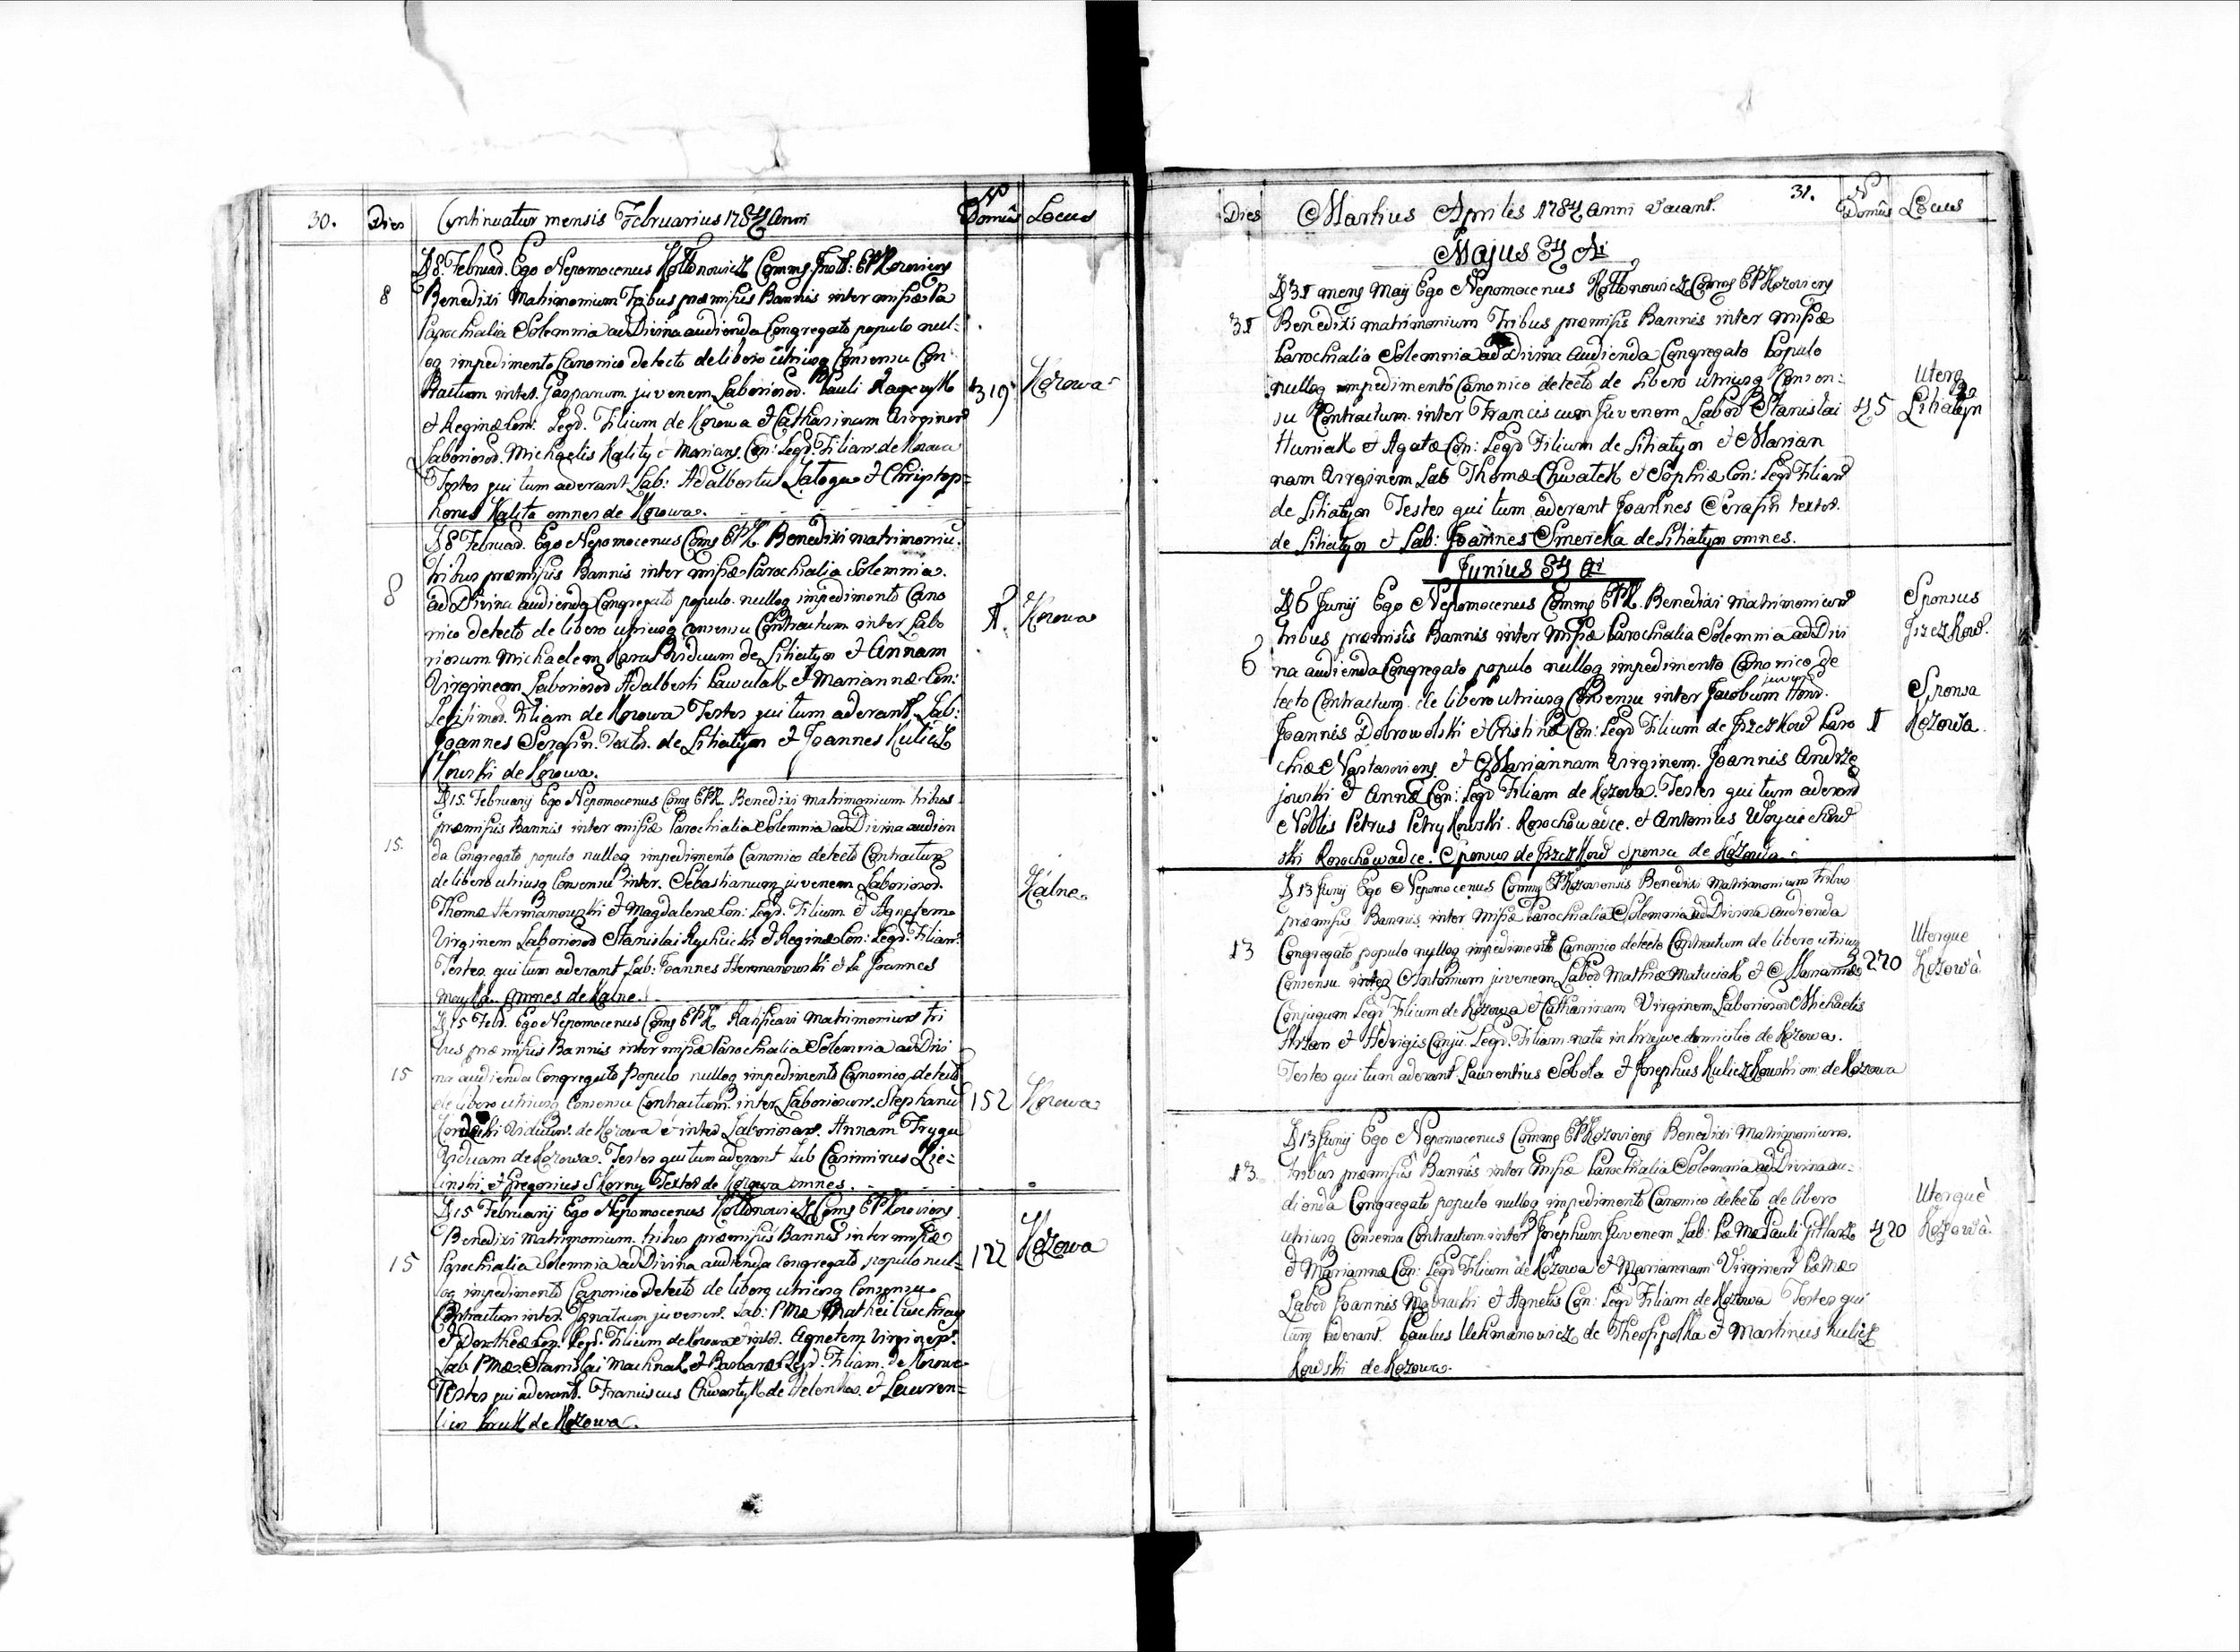 30. Dies Continuatur mensis Februarius 1784 Anni No Domûs Locus
D 8. Februar. Ego Nepomocenus Kottonowicz Comms. EPKozoviens
8 Benedixi Matrimonium Tribus præmissis Bannis inter missæ Pa
Parochialia Solemnia ad Divina audienda Congregato populo nul:
loq impedimento Canonico detecto de libero utriusq Consensu Con
tractum inter Gasparum juvenem Laboriosor. Pauli 319 Kozowa
et Reginæ Con: Legit. Filium de Kozowa et Catharinam Virginem
Laboriosor. Michaelis Kality et Marians. Con: Legit. Filiam de Kozowa
Testes qui tum aderant Lab: Adalbertus Latoga et Christop=
horus Kalita omnes de Kozowa.
D 8 Februar. Ego Nepomocenus Coms EPK. Benedixi matrimoniu.
tribus præmissis Bannis inter missæ Parochialia Solemnia.
8 ad Divina audienda Congregato populo nulloq impedimento Cano
nico detecto de libero utriusq consensu Contractum inter Labo 1. Kozowa
riosum Michaelem Karas Viduum de Lihatyn et Annam
Virginem Laboriosor Adalberti Pawulak et Mariannæ Con:
Legitimor. Filiam de Kozowa Testes qui tum aderant Lab:
Joannes Serafin. Textor. de Lihatyn et Joannes Kulicz
kowski de Kozowa.
D 15. Februarij Ego Nepomocenus Coms EPK. Benedixi matrimonium tribus
præmissis Bannis inter missæ Parochialia Solemnia ad Divina audien
15. da Congregato populo nulloq impedimento Canonico detecto Contractum
de libero utriusq Consensu inter. Sebastianum juvenem Laboriosor. Kalne.
Thomæ Hermanowski et Magdalenæ Con: Legit. Filium et Agnetem
Virginem Laboriosor Stanislai Rychlicki et Reginæ Con: Legit. Filiam.
Testes qui tum aderant Lab: Joannes Hermanowski et La Joannes
Mayka. Omnes de Kalne.
D 15 Febr. Ego Nepomocenus Coms EPK Ratificavi Matrimonium tri
bus præmissis Bannis inter missæ Parochialia Solemnia ad Divi
15 na audienda Congregato Populo nulloq impedimento Canonico detecto
de libero utriusq Consensu Contractum. inter Laboriosum. Stephanu 152 Kozowa
Viduum. de Kozowa et inter Laboriosam. Annam Fryga
Viduam de Kozowa. Testes qui tum aderant Lab Casimirus Zie=
linski, et Gregorius Skorny Textor de Kozowa omnes.
D 15 Februarij Ego Nepomocenus Kottonowicz Coms EPKozoviens
Benedixi Matrimonium. tribus præmissis Bannis inter missæ
15 Parochialia Solemnia ad Divina audienda congregato populo nul= 122 Kozowa
loq impedimento Canonico Detecto de libero utriusq Consensu
Contractum inter Ignatium juvenem. Lab: PMæ Mathei
et Dorotheæ Con. Legit. Filium de Kozowa et inter. Agnetem Virginem.
Lab. PMæ Stanislai Machnak et Barbaræ Legit. Filiam. de Kozowa
Testes qui aderant. Franciscus Chwastyk de Helenkow. et Lauren=
tius Kruk de Kozowa.
Dies Martius Aprilis 1784 anni vacant. 31. No Domûs Locus
Majus 84 Ai
D 31 mens Maij Ego Nepomocenus Kottonowicz Coms EPKozoviens
31 Benedixi matrimonium Tribus præmissis Bannis inter missæ
Parochialia Solemnia ad Divina Audienda Congregato Populo
nulloq impedimentô Canonico detectô de Libero utriusq Consen: Uterq
su Contractum. inter Franciscum Juvenem Labor Stanislai 45 Lihatyn
Huniak et Agatæ Con: Legit Filium de Lihatyn et Marian
nam Virginem Lab Thomæ Chwalek et Sophiæ Con: Legit Filiam
de Lihatyn Testes qui tum aderant Joannes Serafin textor.
de Lihatyn et Lab: Joannes Smereka de Lihatyn omnes.
Junius 84 Ai
D 6 Junij Ego Nepomocenus Comms EPK. Benedixi Matrimonium Sponsus
tribus præmissis Bannis inter Missæ Parochialia Solemnia ad Divi Jszczkow.
6 na audienda Congregato populo nulloq impedimento Canonico de
tecto Contractum de libero utriusq Consensu inter Jacobum juvenem Sponsa
Joannis Dobrowolski et Cristinæ Con: Legit Filium de Jszczkow Paro 1 Kozowa.
chiæ Nastasoviens. et Mariannam Virginem. Joannis Andrze
jowski et Annæ Con: Legit Filiam de Kozowa. Testes qui tum aderant
Nobilis Petrus Petrykowski. Rosochowavce. et Antonius Woyciechow
ski Rosochowadce. Sponsus de Jszczkow Sponsa de Kozowa.
D 13 Junij Ego Nepomocenus Comms EPKozoviensis Benedixi Matrimonium tribus
præmissis Bannis inter Missæ Parochialia Solemnia ad Divina audienda
13 Congregato populo nulloq impedimentô Canonico detecto Contractum de libero utriusq Uterque
Consensu inter Antonium juvenem Labor Mathiæ Matuciak et Mariannæ 270 Kozowa
Conjugum Legit Filium de Kozowa et Catharinam Virginem Laboriosor Michaelis
et Hedvigis Conju. Legit. Filiam nata in domicilio de Kozowa.
Testes qui tum aderant. Laurentius Sobola et Josephus Kuliczkowski om: de Kozowa
D 13 Junij Ego Nepomocenus Comms EPKozoviens Benedixi Matrimonium.
13. tribus præmissis Bannis inter Missæ Parochialia Solemnia ad Divina au=
dienda Congregato populo nulloq impedimento Canonico detecto de libero Uterque
utriusq Consensu Contractum inter Josephum Juvenem Lab: PæMæ Pauli 420 Kozowa.
et Mariannæ Con: Legit Filium de Kozowa et Mariannam Virginem PæMæ
Labor Joannis et Agnetis Con: Legit Filiam de Kozowa Testes qui
tum aderant. Paulus Uchmanowicz de Theofipolka et Martinus Kulicz
kowski de Kozowa.